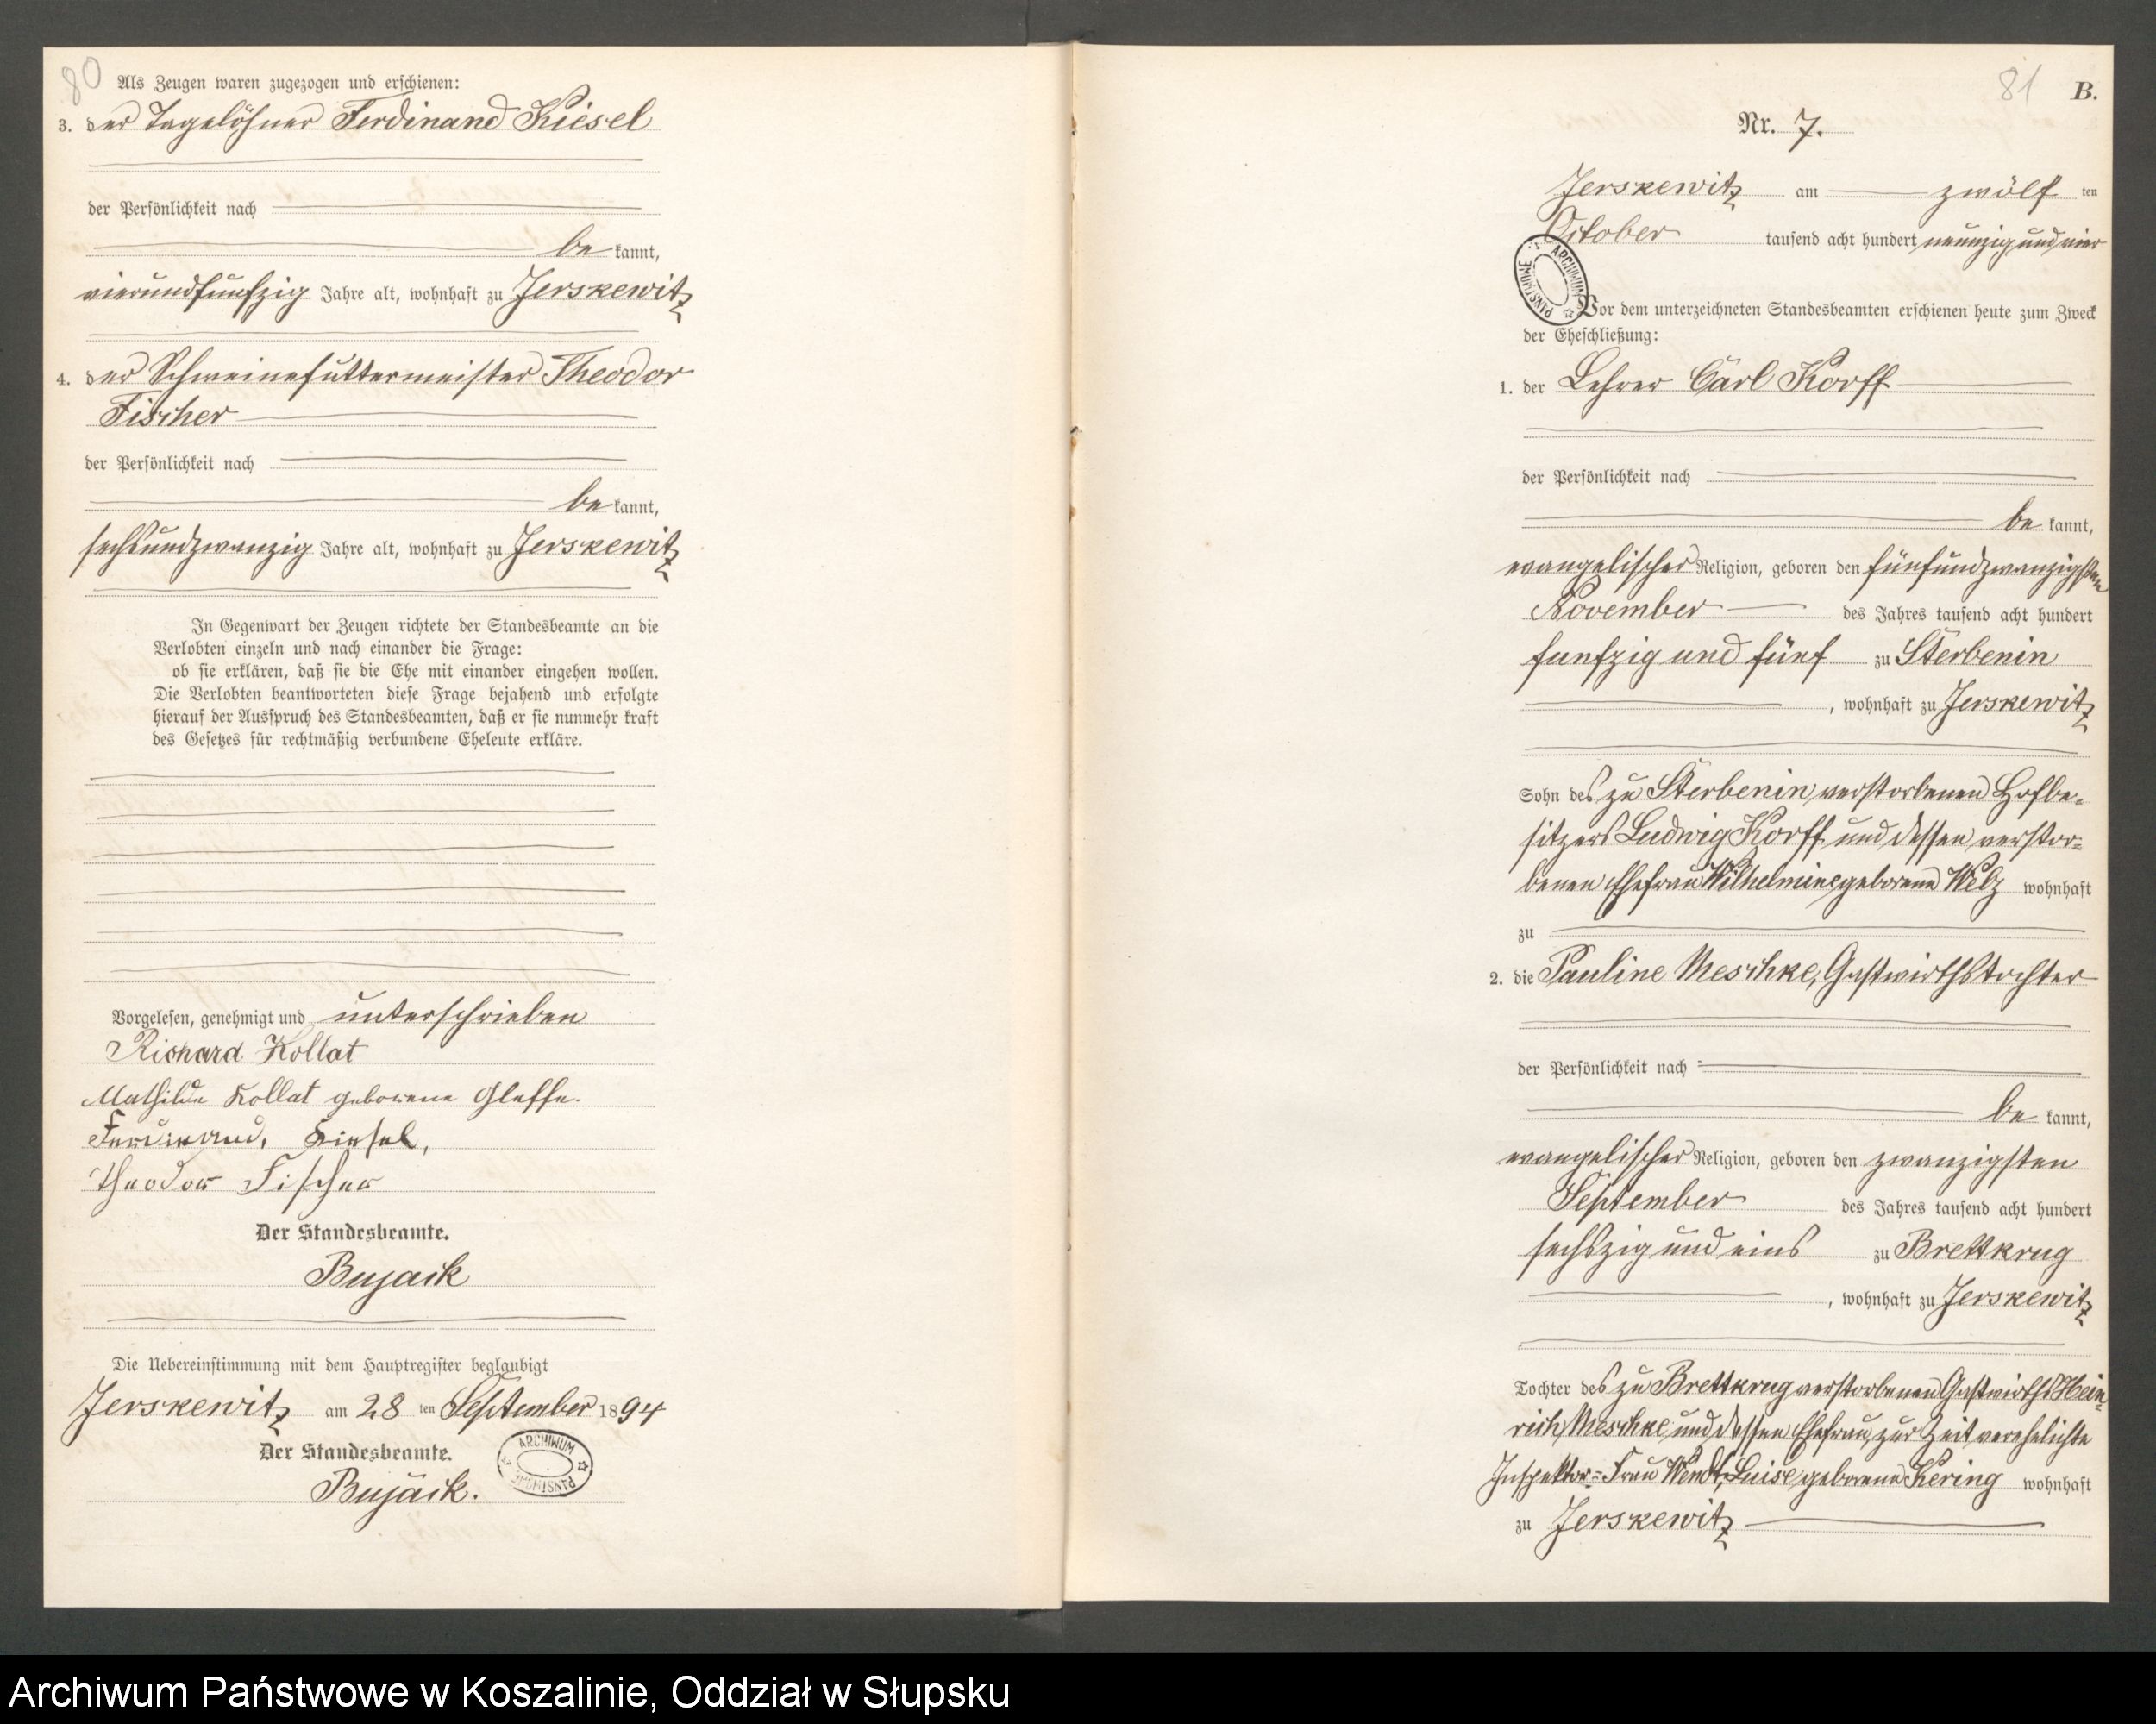 80
Als Zeugen waren zugezogen und erschienen:
3. der Tagelöhner Ferdinand Kiesel
der Persönlichkeit nach
be kannt,
vierundfunfzig Jahre alt, wohnhaft zu Jerskewitz
4. der Schweinefuttermeister Theodor
Fischer
der Persönlichkeit nach
be kannt,
sechsundzwanzig Jahre alt, wohnhaft zu Jerskewitz
In Gegenwart der Zeugen richtete der Standesbeamte an die
Verlobten einzeln und nach einander die Frage:
ob sie erklären, daß sie die Ehe mit einander eingehen wollen.
Die Verlobten beantworteten diese Frage bejahend und erfolgte
hierauf der Ausspruch des Standesbeamten, daß er sie nunmehr kraft
des Gesetzes für rechtmäßig verbundene Eheleute erkläre.
Vorgelesen, genehmigt und unterschrieben
Richard Kollat
Mathilde Kollat geborene Gleffe.
Ferdinand, Kiesel,
Theodor Fischer
Der Standesbeamte.
Bujack
Die Uebereinstimmung mit dem Hauptregister beglaubigt
Jerskewitz am 28 ten September 1894
Der Standesbeamte.
Bujack.
ARCHIWUM PAŃSTWOWE
81
B.
Nr. 7.
Jerskewitz am zwölf ten
October tausend acht hundert neunzig und vier
ARCHIWUM PAŃSTWOWE
Vor dem unterzeichneten Standesbeamten erschienen heute zum Zweck
der Eheschließung:
1. der Lehrer Carl Korff
der Persönlichkeit nach
be kannt,
evangelischer Religion, geboren den fünfundzwanzigsten
November des Jahres tausend acht hundert
funfzig und fünf zu Sterbenin
, wohnhaft zu Jerskewitz
Sohn des zu Sterbenin verstorbenen Hofbe-
sitzers Ludwig Korff und dessen verstor-
benen Ehefrau Wilhelmine geborene Welz wohnhaft
zu
2. die Pauline Meschke, Gastwirthstochter
der Persönlichkeit nach
be kannt,
evangelischer Religion, geboren den zwanzigsten
September des Jahres tausend acht hundert
sechszig und eins zu Brettkrug
, wohnhaft zu Jerskewitz
Tochter des zu Brettkrug verstorbenen Gastwirths Hein-
rich Meschke und dessen Ehefrau, zur Zeit verehelichte
Inspektor-Frau Wendt, Luise geborene Kering wohnhaft
zu Jerskewitz
Archiwum Państwowe w Koszalinie, Oddział w Słupsku